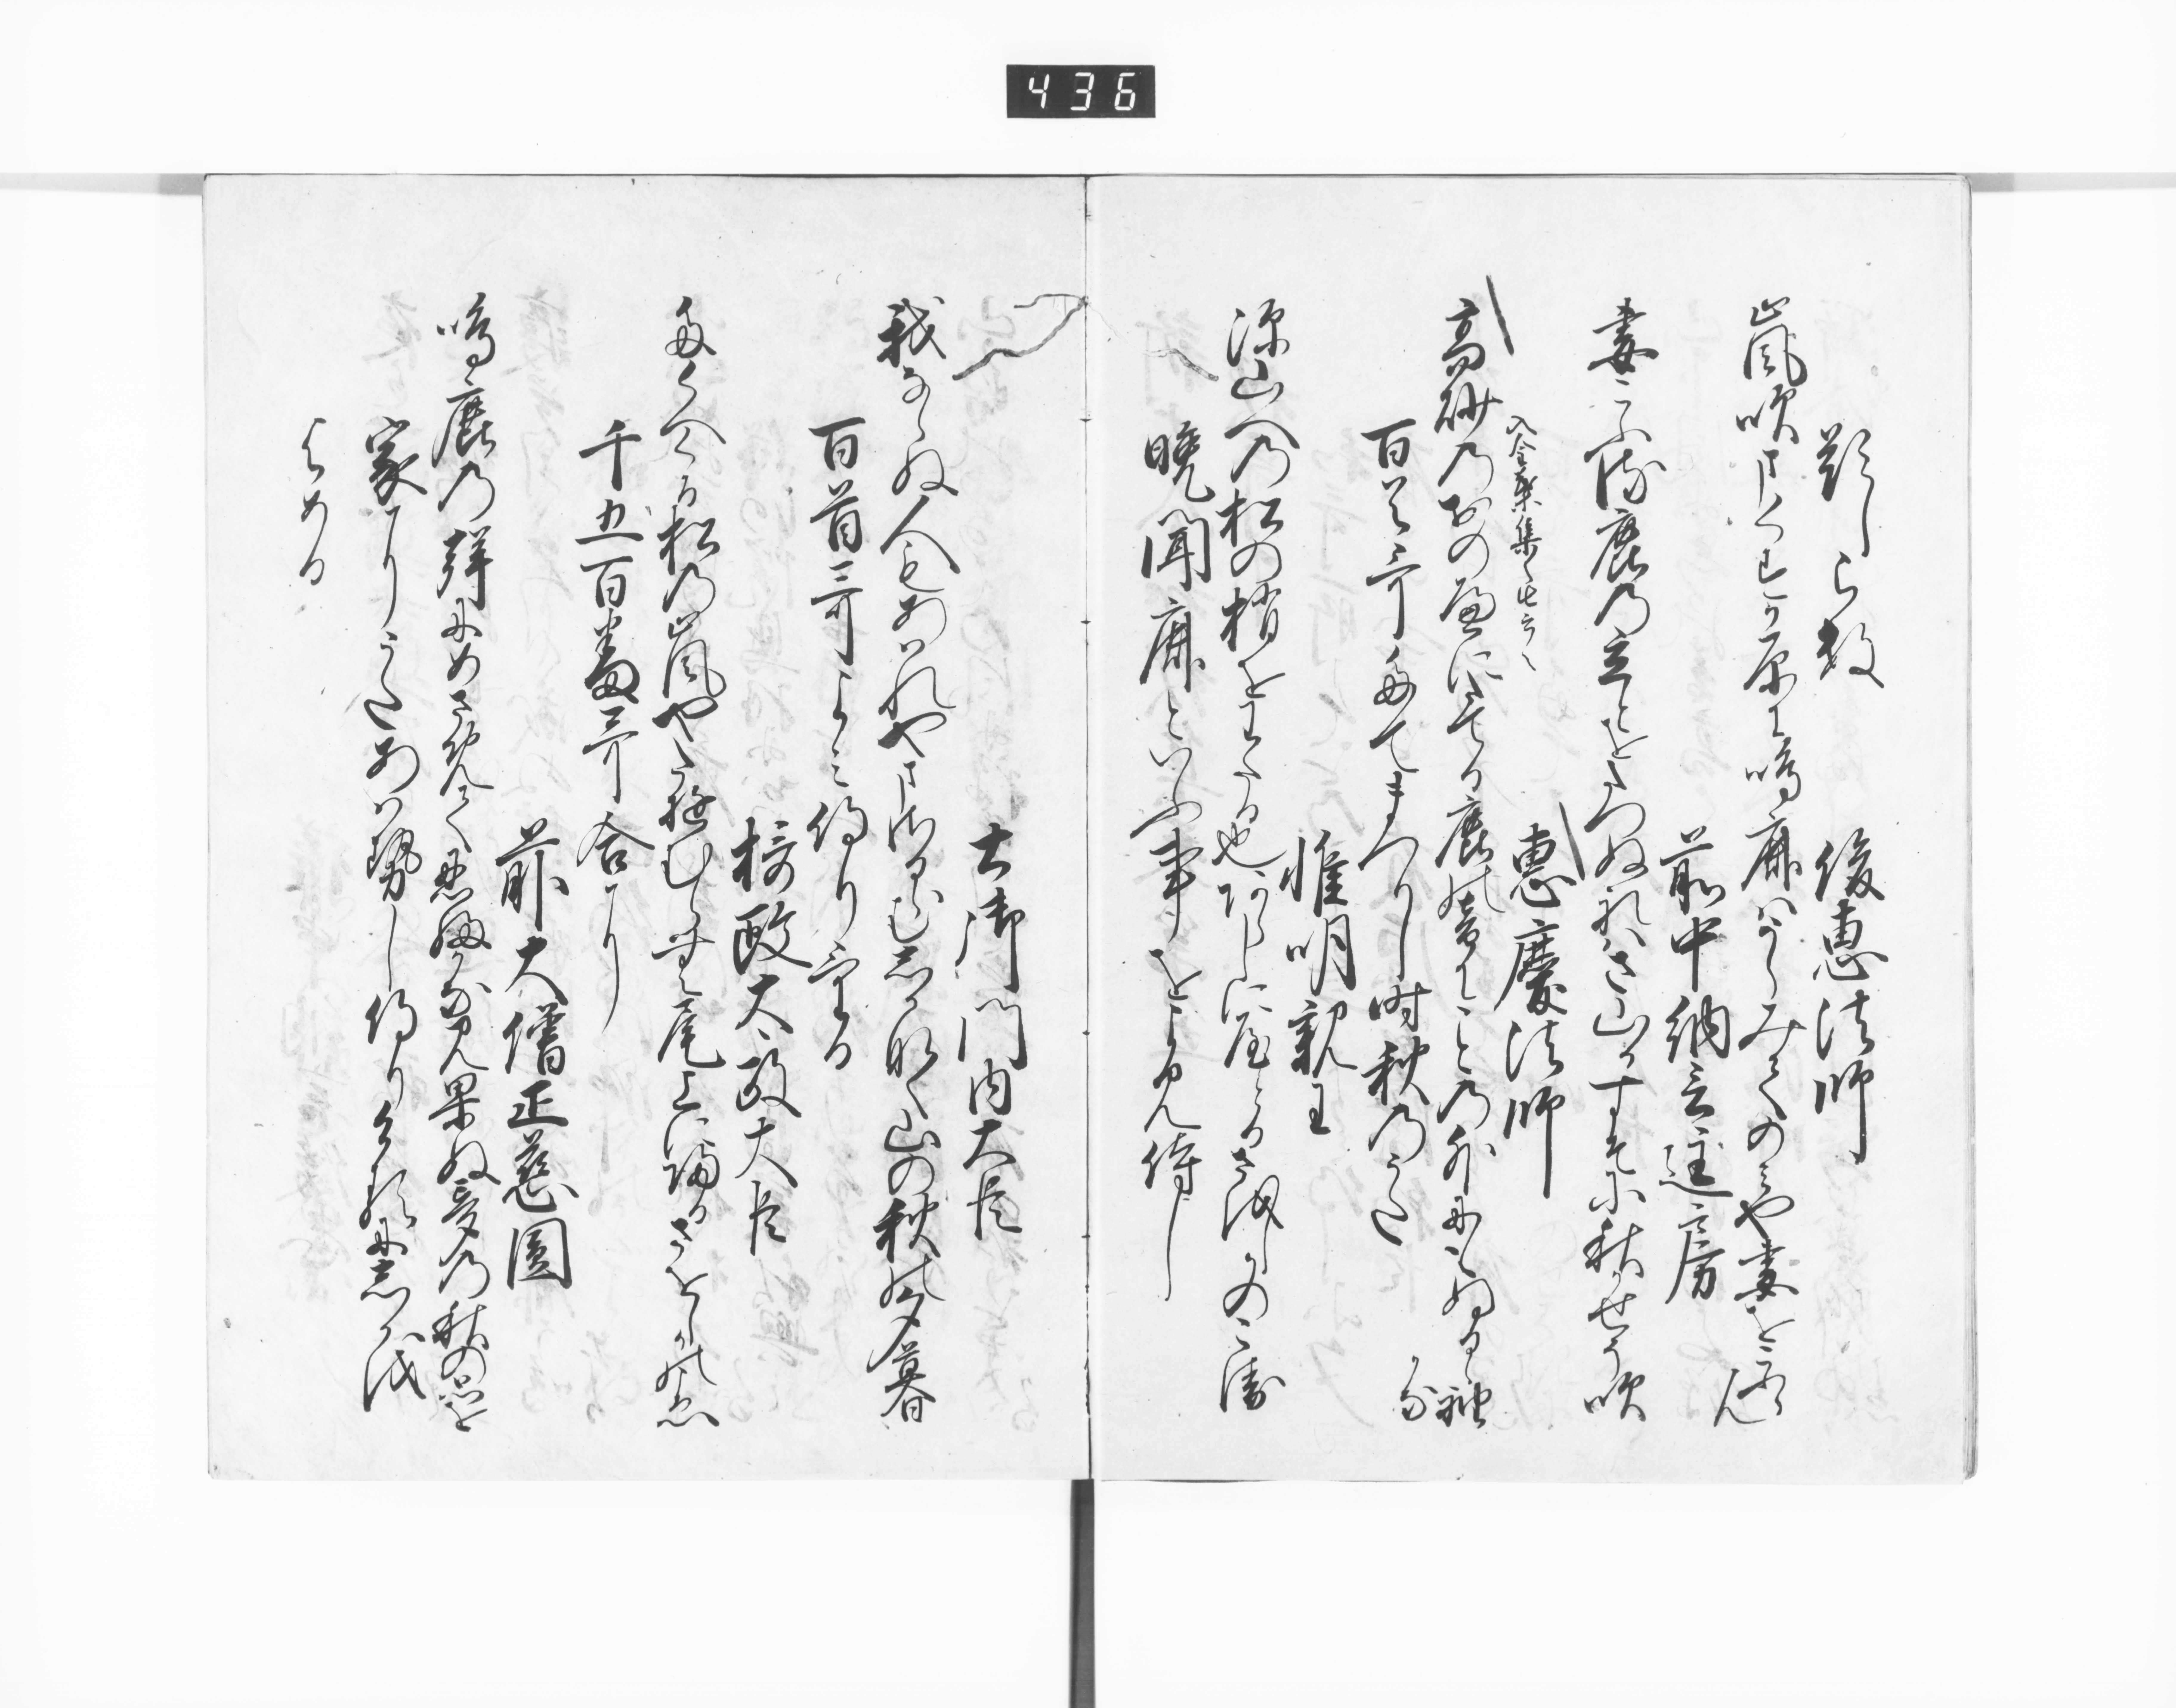 436
題しらす　俊恵法師
嵐吹まくすか原に鳴鹿はうらみてのみや妻をこふらん
前中納言匡房
妻こふる鹿の立とをたつぬれはさ山かすそに秋かせそ吹
入金葉集
恵慶法師
高砂の尾の上にたてる鹿の音にことの外にもぬるゝ袖かな
百首哥たてまつりし時秋のうた
惟明親王
深山への松の梢をわたる也あらしに屋とるさをしかのこゑ
晩聞鹿といふ事をよみ侍し
土御門内大臣
我ならぬ人もあはれやまさるらむ鹿なく山の秋の夕暮
百首哥よみ侍りけるに
摂政太政大臣
たくへくる松の嵐やたゆむらむ尾上に帰るさをしかの声
千五百番哥合に
前大僧正慈圓
鳴鹿の声にめさめて忍ふかな見果ぬ夢の秋の思を
家にうたあはせし侍りけるに鹿を
よめる